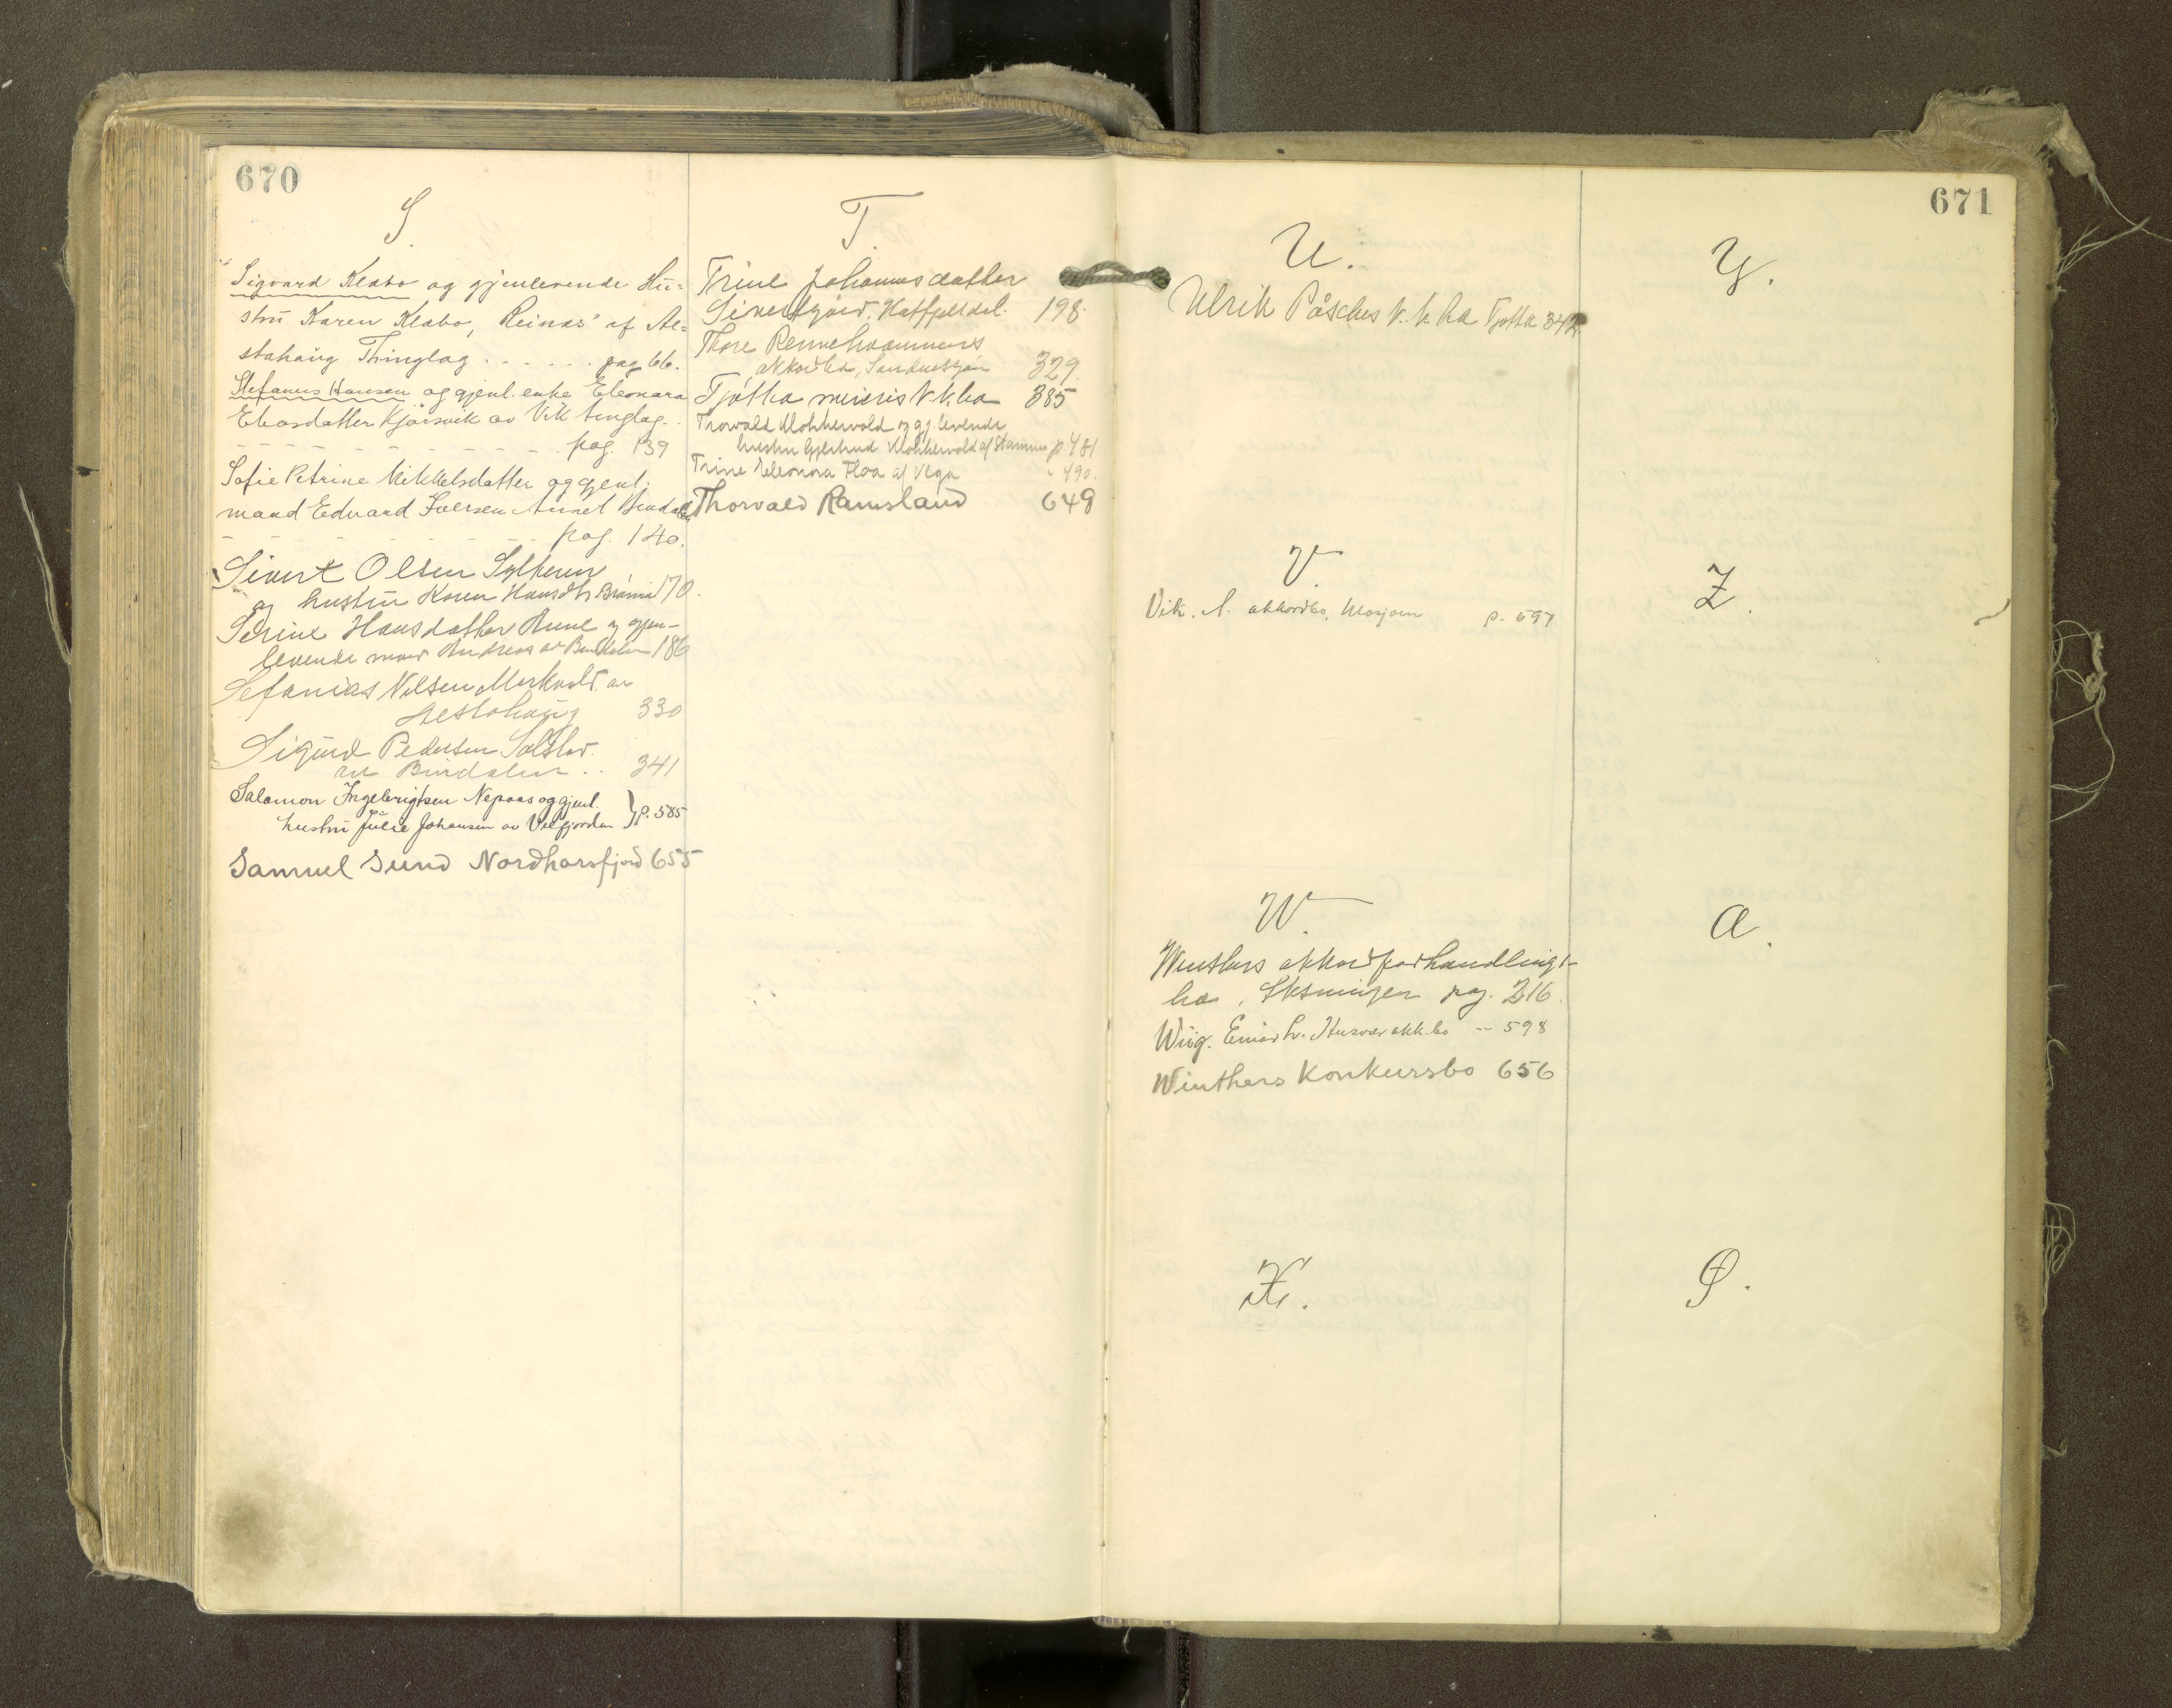 670
S.
Sigvard Klæbo og gjenlevende Hu=
stru Karen Klæbo, Reinæs af Al=
stahaug Thinglag . . . . . . pag 66.
Stefanus Hansen og gjenl. enke Eleonara
Eliasdatter Kjærsvik av Vik tinglag.
pag. 139
Sofie Petrine Mikkelsdatter og gjenl.
mand Edvard Iversen Bindalen
pag. 140.
Sivert Olsen
og hustru Karen Hansdtr. 170.
Serine Hansdatter og gjen-
levende mand Andreas av Bindalen 186
Sefanias Nilsen av
Alstahaug 330
Sigurd Pedersen
av Bindalen . . 341
Salamon Ingebrigtsen Nepaas og gjenl. } p. 585
hustru Julie Johansen av Velfjorden
Samuel Sund Nordhorsfjord 655
T.
Trine Johannesdatter
Hatfjelldal. 198
Thore
akkordbo, Sandnessjøen 329
Tjøtta meieris k.k.bo 385
Torvald Klokkervold og gj. levende
hustru Klokkervold af p. 481
Trine Eleonora Floa af Vega " 490.
Thorvald Ramsland 649
671
U.
Ulrik Påsches k.k.bo Tjøtta 342
V.
Vik. A. akkordbo, Mosjøen p. 597
W.
Winthers akkordforhandlings-
bo, pag. 216.
Wiig. Einar Husvær akk.bo " 598
Winthers Konkursbo 656
X.
Y.
Z.
a.
Ø.